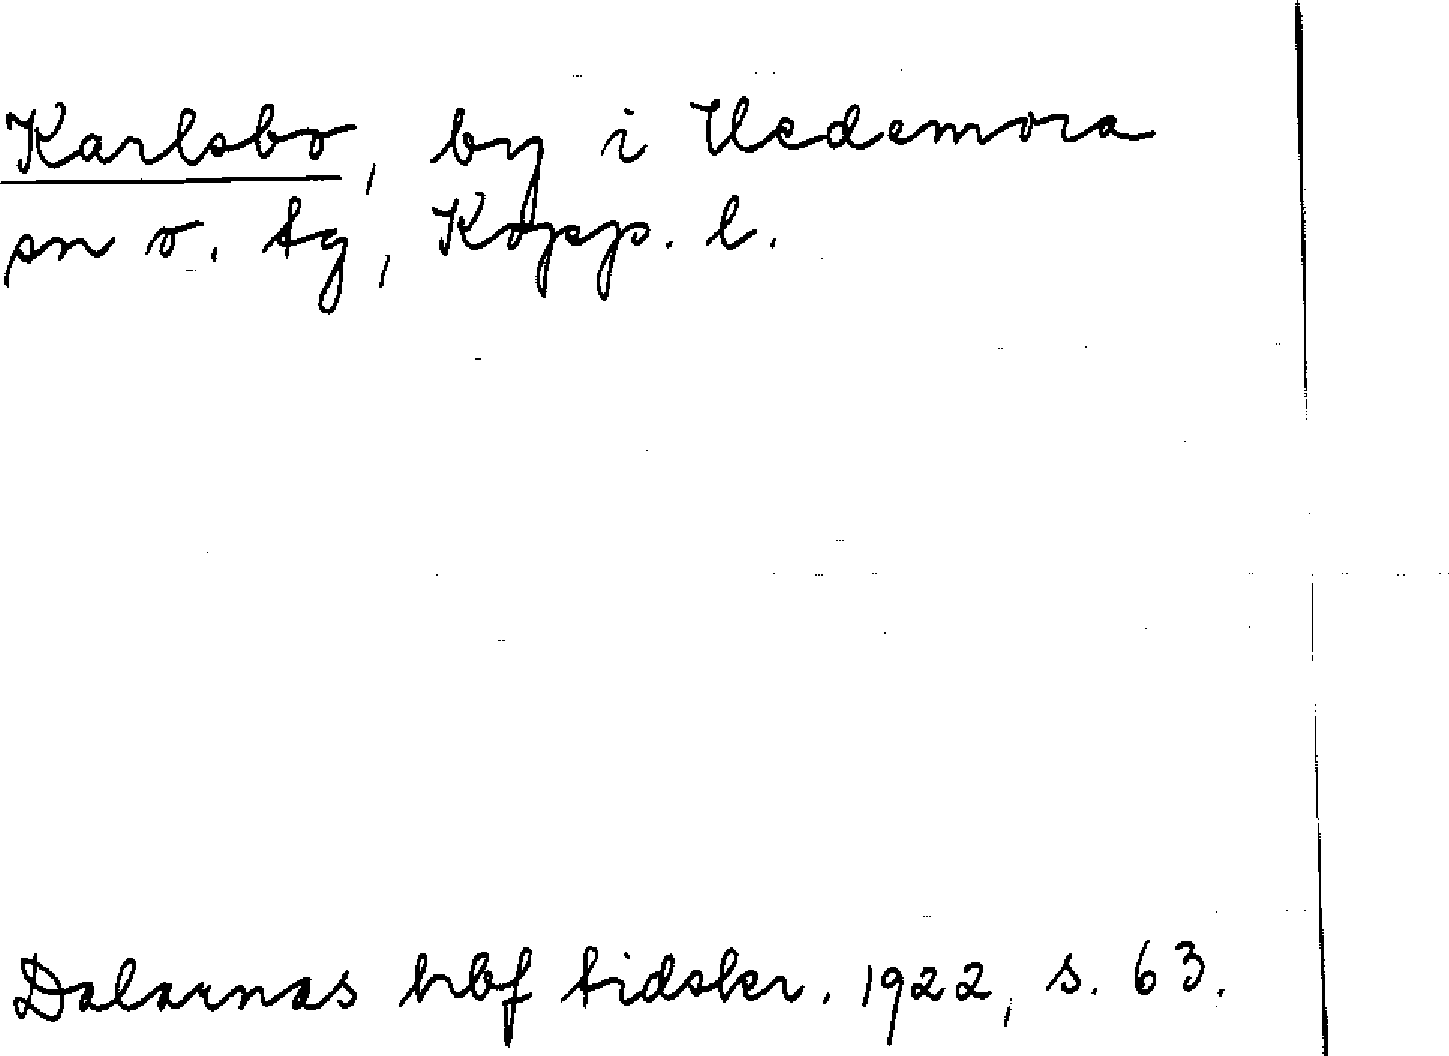 Karlsbo, by i Hedemora
sn o. tg, Kopp. l.
Dalarnas hbf tidskr. 1922, s. 63.